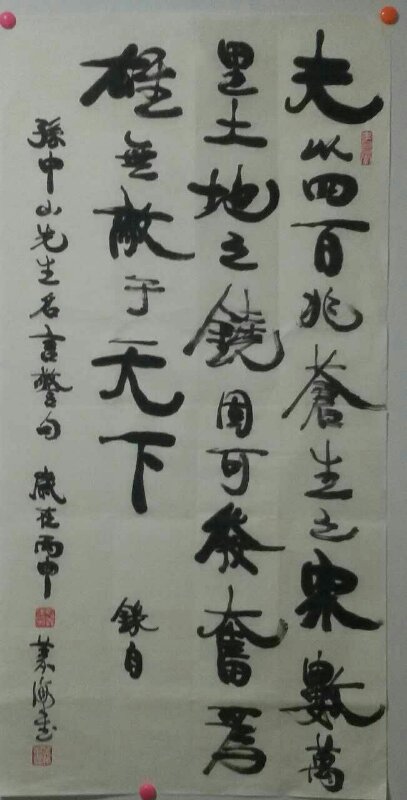 夫以四百兆蒼生之眾數萬
里土地之饒固可發奮為
雄無敵于天下
錄自
孫中山先生名言警句 歲在丙申